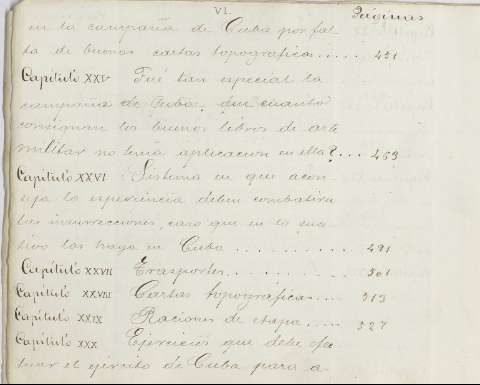 VI
Páginas
en la campaña de Cuba por fal
ta de buenos cartas topográficas..... 451
Capítulo XXV Fué tan especial la
campaña de Cuba, que cuanto
consignan los buenos libros de arte
militar no tenía aplicación en ella?... 463
Capítulo XXVI Sistema en que acon
seja la esperiencia deben combatirse
las insurrecciones, caso que en lo suce
sivo las haya en Cuba .......... 491
Capítulo XXVII Trasportes.......... 501
Capítulo XXVIII Cartas topográficas... 513
Capítulo XXIX Raciones de etapa.... 527
Capítulo XXX Ejercicios que debe efec
tuar el ejército de Cuba para a-